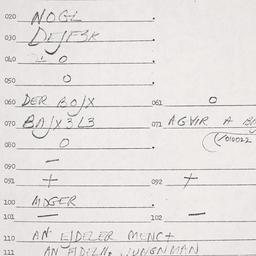 020 NOGL
030 DEJFSK
040 ± 0
050 0
060 DER BOJX 061 0
070 BAJX3L3 071 AGVIR A
080 0
090 —
091 + 092 +
100 MDGER
101 — 102 —
110 AN EJDELER MENC+
111 AN EJDELN. JUNGNMAN